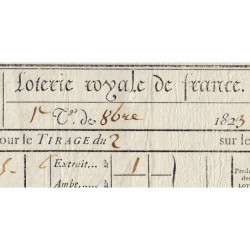 Loterie royale de france.
1r Te. de 8bre 1823
pour le TIRAGE du 2 sur le
5 6 Extrait.... à 1
Ambt..... à